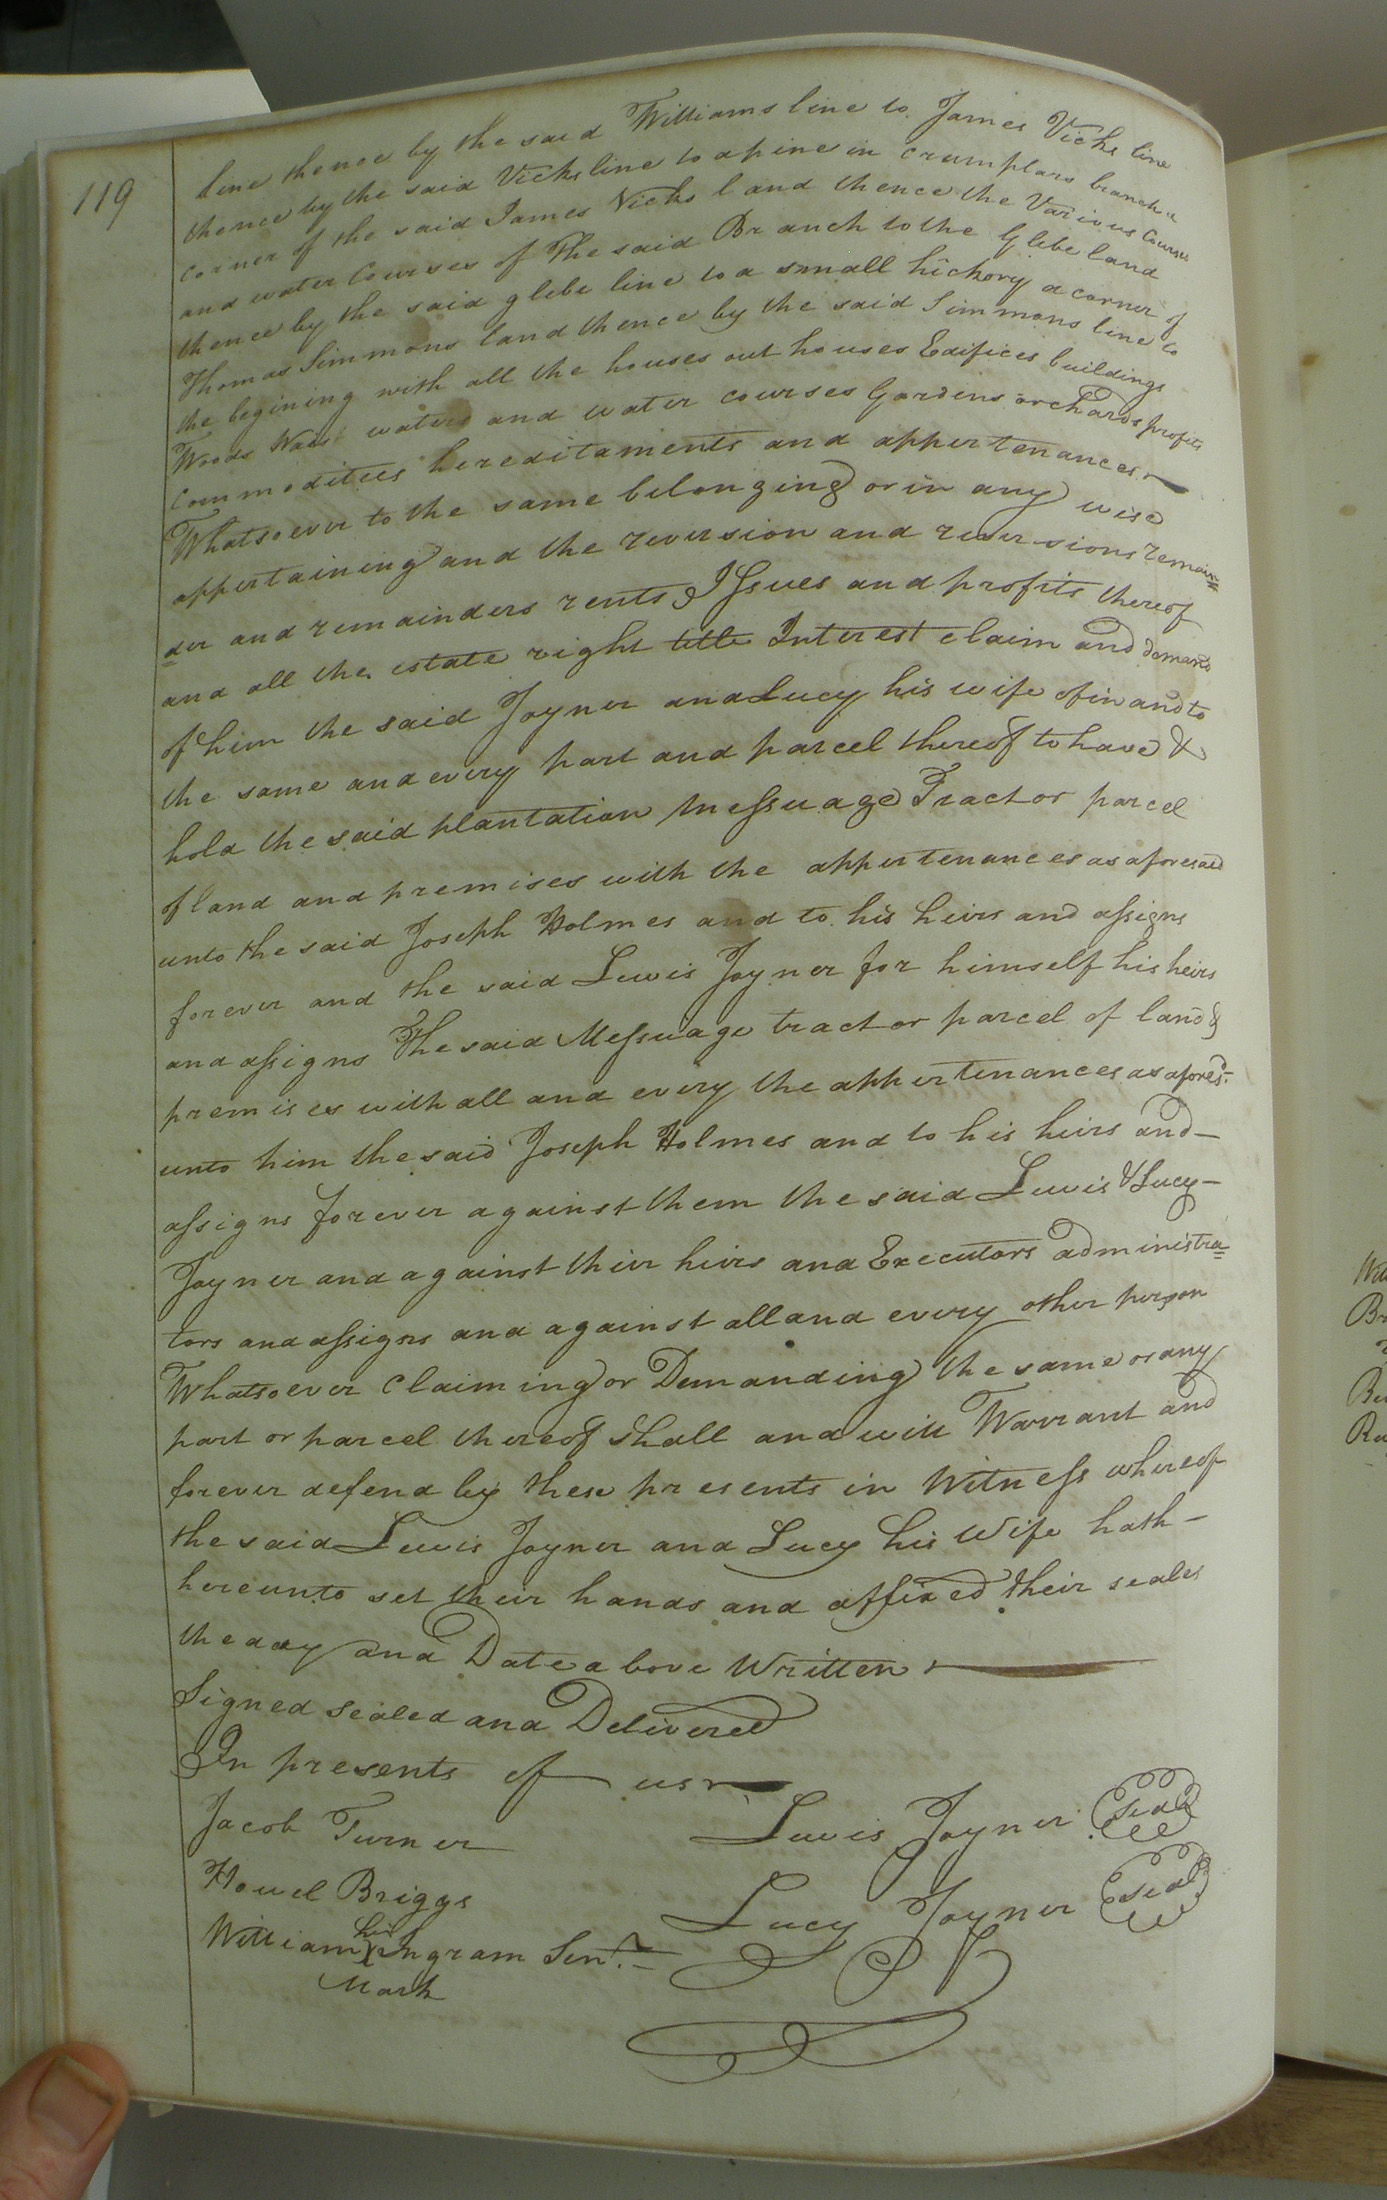 119
line thence by the said Williams line to James Vicks line
thence by the said Vicks line to a pine in Crumplars branch a
corner of the said James Vicks land thence the Various Courses
and water Courses of The said Branch to the Glebe land
thence by the said glebe line to a small hickory a corner of
Thomas Simmons land thence by the said Simmons line to
the begining with all the houses out houses Edifices buildings
Woods Wais waters and water courses Gardens orchards profits
Commodities hereditaments and appertenances
Whatsoever to the same belonging or in any wise
appertaining and the reversion and reversions remain=
=der and remainders rents & Issues and profits thereof
and all the estate right title Interest claim and demand
of him the said Joyner and Lucy his wife of in and to
the same and every part and parcel thereof to have &
hold the said plantation Messuage Tract or parcel
of land and premises with the appertenances as aforesaid
unto the said Joseph Holmes and to his heirs and assigns
forever and the said Lewis Joyner for himself his heirs
and assigns The said Messuage tract or parcel of land &
premises with all and every the appertenances as aforesd.
unto him the said Joseph Holmes and to his heirs and -
assigns forever against them the said Lewis & Lucy -
Joyner and against their heirs and Executors administra=
tors and assigns and against all and every other person
Whatsoever Claiming or Demanding the same or any
part or parcel thereof shall and will Warrant and
forever defend by these presents in Witness whereof
the said Lewis Joyner and Lucy his Wife hath -
hereunto set their hands and affixed their seales
the day and Date above Written
Signed sealed and Delivered
In presents of us
Jacob Turner
Lewis Joyner Seal
Howel Briggs
Lucy Joyner Seal
his
William X Ingram Senr.
Mark
Wit